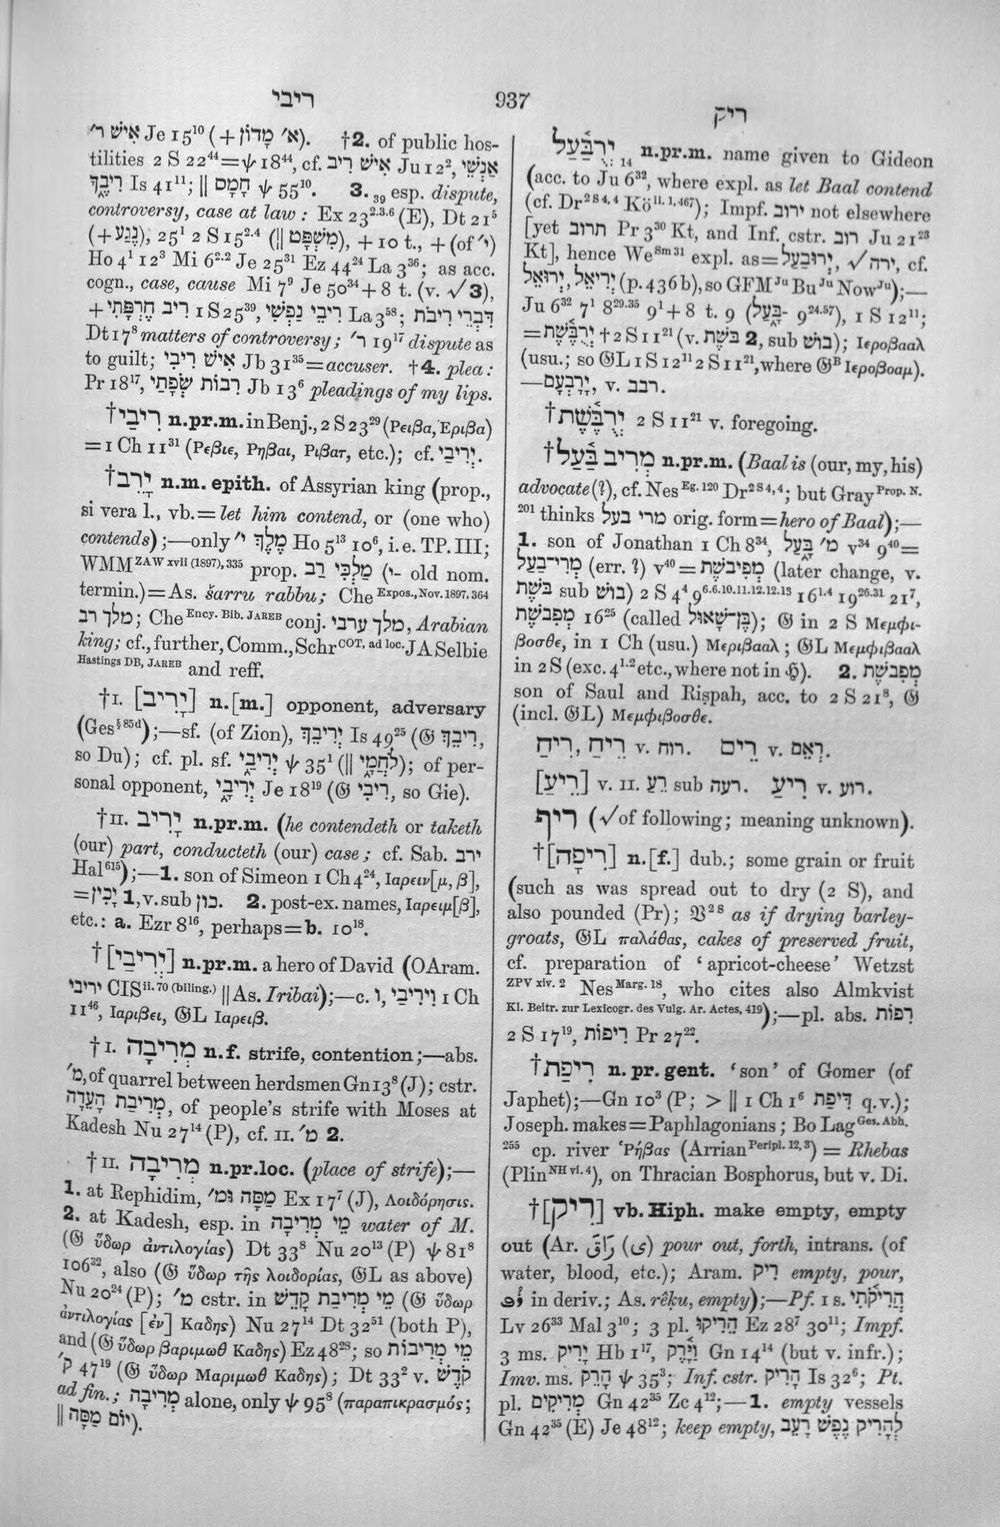 ריבי
937
ריק
אִישׁ ר׳ Je 15¹⁰ (+ א׳ מָדוֹן). †2. of public hos-
tilities 2 S 22⁴⁴=ψ 18⁴⁴, cf. אִישׁ רִיב Ju 12², אַנְשֵׁי
רִיבֶ֑ךָ Is 41¹¹; ‖ חָמָס ψ 55¹⁰. 3.₃₉ esp. dispute,
controversy, case at law: Ex 23².³.⁶ (E), Dt 21⁵
(+נֶגַע); 25¹ 2 S 15².⁴ (‖ מִשְׁפָּט), +10 t., +(of י׳)
Ho 4¹ 12³ Mi 6².² Je 25³¹ Ez 44²⁴ La 3³⁶; as acc.
cogn., case, cause Mi 7⁹ Je 50³⁴+8 t. (v. √3),
+ רִיב חֶרְפָּתִי 1 S 25³⁹, רִיבֵי נַפְשִׁי La 3⁵⁸; דִּבְרֵי רִיבֹת
Dt 17⁸ matters of controversy; ר׳ 19¹⁷ dispute as
to guilt; אִישׁ רִיבִי Jb 31³⁵=accuser. †4. plea:
Pr 18¹⁷, רִבוֹת שְׂפָתַי Jb 13⁶ pleadings of my lips.
†רִיבַי n.pr.m. in Benj., 2 S 23²⁹ (Ρειβα, Εριβα)
=1 Ch 11³¹ (Ρεβιε, Ρηβαι, Ριβατ, etc.); cf. יְרִיבַי.
†יָרֵב n.m. epith. of Assyrian king (prop.,
si vera l., vb.=let him contend, or (one who)
contends);—only מֶלֶךְ י׳ Ho 5¹³ 10⁶, i.e. TP. III;
WMM ZAW xvii (1897), 335 prop. מַלְכִּי רַב (־ִי old nom.
termin.)=As. šarru rabbu; Che Expos., Nov. 1897, 364
מלך רב; Che Ency. Bib. JAREB conj. מלך ערבי, Arabian
king; cf., further, Comm., Schr COT, ad loc. JASelbie
Hastings DB, JAREB and reff.
†I. [יָרִיב] n.[m.] opponent, adversary
(Ges § 85d);—sf. (of Zion), יְרִיבֵךְ Is 49²⁵ (𝔊 רִיבֵךְ,
so Du); cf. pl. sf. יְרִיבַי ψ 35¹ (‖ לֹחֲמָי); of per-
sonal opponent, יְרִיבָי Je 18¹⁹ (𝔊 רִיבִי, so Gie).
†II. יָרִיב n.pr.m. (he contendeth or taketh
(our) part, conducteth (our) case; cf. Sab. ירב
Hal⁶¹⁵);—1. son of Simeon 1 Ch 4²⁴, Ιαρειν[μ, β],
=יָכִין 1, v. sub כון. 2. post-ex. names, Ιαρειμ[β],
etc.: a. Ezr 8¹⁶, perhaps=b. 10¹⁸.
†[יְרִיבַי] n.pr.m. a hero of David (OAram.
יריבי CIS ii. 70 (biling.) ‖ As. Iribai);—c. ו, וִירִיבַי 1 Ch
11⁴⁶, Ιαριβει, 𝔊L Ιαρειβ.
†I. מְרִיבָה n.f. strife, contention;—abs.
מ׳, of quarrel between herdsmen Gn 13⁸ (J); cstr.
מְרִיבַת הָעֵדָה, of people's strife with Moses at
Kadesh Nu 27¹⁴ (P), cf. II. מ׳ 2.
†II. מְרִיבָה n.pr.loc. (place of strife);—
1. at Rephidim, מַסָּה וּמ׳ Ex 17⁷ (J), Λοιδόρησις.
2. at Kadesh, esp. in מֵי מְרִיבָה water of M.
(𝔊 ὕδωρ ἀντιλογίας) Dt 33⁸ Nu 20¹³ (P) ψ 81⁸
106³², also (𝔊 ὕδωρ τῆς λοιδορίας, 𝔊L as above)
Nu 20²⁴ (P); מ׳ cstr. in מֵי מְרִיבַת קָדֵשׁ (𝔊 ὕδωρ
ἀντιλογίας [ἐν] Καδης) Nu 27¹⁴ Dt 32⁵¹ (both P),
and (𝔊 ὕδωρ βαριμωθ Καδης) Ez 48²⁸; so מֵי מְרִיבוֹת
ק׳ 47¹⁹ (𝔊 ὕδωρ Μαριμωθ Καδης); Dt 33² v. קֹדֶשׁ
ad fin.; מְרִיבָה alone, only ψ 95⁸ (παραπικρασμός;
‖ יוֹם מַסָּה).
יְרֻבַּ֫עַל₁₄ n.pr.m. name given to Gideon
(acc. to Ju 6³², where expl. as let Baal contend
(cf. Dr 2 S 4, 4 Kö ii. 1, 467); Impf. ירוב not elsewhere
[yet תרוב Pr 3³⁰ Kt, and Inf. cstr. רוב Ju 21²³
Kt], hence We Sm 31 expl. as=יְרוּבַעַל, √ירה, cf.
יְרִיאֵל, יְרוּאֵל (p. 436 b), so GFM Ju Bu Ju Now Ju);—
Ju 6³² 7¹ 8²⁹.³⁵ 9¹+8 t. 9 (־בָּ֑עַל 9²⁴.⁵⁷), 1 S 12¹¹;
=יְרֻבֶּ֫שֶׁת †2 S 11²¹ (v. בֹּשֶׁת 2, sub בּוֹשׁ); Ιεροβααλ
(usu.; so 𝔊L 1 S 12¹¹ 2 S 11²¹, where 𝔊ᴮ Ιεροβοαμ).
—יָרָבְעָם, v. רבב.
†יְרֻבֶּ֫שֶׁת 2 S 11²¹ v. foregoing.
†מְרִיב בַּ֫עַל n.pr.m. (Baal is (our, my, his)
advocate(?), cf. Nes Eg. 120 Dr 2 S 4, 4; but Gray Prop. N.
201 thinks מרי בעל orig. form=hero of Baal);—
1. son of Jonathan 1 Ch 8³⁴, מ׳ בָּ֑עַל v³⁴ 9⁴⁰=
מְרִי־בַעַל (err. ?) v⁴⁰ = מְפִיבֹשֶׁת (later change, v.
בֹּשֶׁת sub בּוֹשׁ) 2 S 4⁴ 9⁶.⁶.¹⁰.¹¹.¹².¹².¹³ 16¹.⁴ 19²⁶.³¹ 21⁷,
מְפִבֹשֶׁת 16²⁵ (called בֶּן־שָׁאוּל); 𝔊 in 2 S Μεμφι-
βοσθε, in 1 Ch (usu.) Μεριβααλ; 𝔊L Μεμφιβααλ
in 2 S (exc. 4¹.² etc., where not in ℌ). 2. מְפִבֹשֶׁת
son of Saul and Rispah, acc. to 2 S 21⁸, 𝔊
(incl. 𝔊L) Μεμφιβοσθε.
רִיחַ, רֵיחַ v. רוח. רֵים v. רְאֵם.
[רִיעַ] v. II. רֵעַ sub רעה. רִיעַ v. רוע.
ריף (√of following; meaning unknown).
†[רִיפָה] n.[f.] dub.; some grain or fruit
(such as was spread out to dry (2 S), and
also pounded (Pr); 𝔙 2 S as if drying barley-
groats, 𝔊L παλάθας, cakes of preserved fruit,
cf. preparation of ‘apricot-cheese’ Wetzst
ZPV xiv. 2 Nes Marg. 18, who cites also Almkvist
Kl. Beitr. zur Lexicogr. des Vulg. Ar. Actes, 419);—pl. abs. רִפוֹת
2 S 17¹⁹, רִיפוֹת Pr 27²².
†רִיפַת n. pr. gent. ‘son’ of Gomer (of
Japhet);—Gn 10³ (P; > ‖ 1 Ch 1⁶ דִּיפַת q.v.);
Joseph. makes=Paphlagonians; Bo Lag Ges. Abh.
255 cp. river Ῥήβας (Arrian Peripl. 12, 3) = Rhebas
(Plin NH vi. 4), on Thracian Bosphorus, but v. Di.
†[רִיק] vb. Hiph. make empty, empty
out (Ar. رَاقَ (ى) pour out, forth, intrans. (of
water, blood, etc.); Aram. רִיק empty, pour,
in deriv.; As. rêḳu, empty);—Pf. 1 s. הֲרִיקֹתִי
Lv 26³³ Mal 3¹⁰; 3 pl. הֵרִיקוּ Ez 28⁷ 30¹¹; Impf.
3 ms. יָרִיק Hb 1¹⁷, וַיָּ֫רֶק Gn 14¹⁴ (but v. infr.);
Imv. ms. הָרֵק ψ 35³; Inf. cstr. הָרִיק Is 32⁶; Pt.
pl. מְרִיקִים Gn 42³⁵ Zc 4¹²;—1. empty vessels
Gn 42³⁵ (E) Je 48¹²; keep empty, לְהָרִיק נֶפֶשׁ רָעֵב